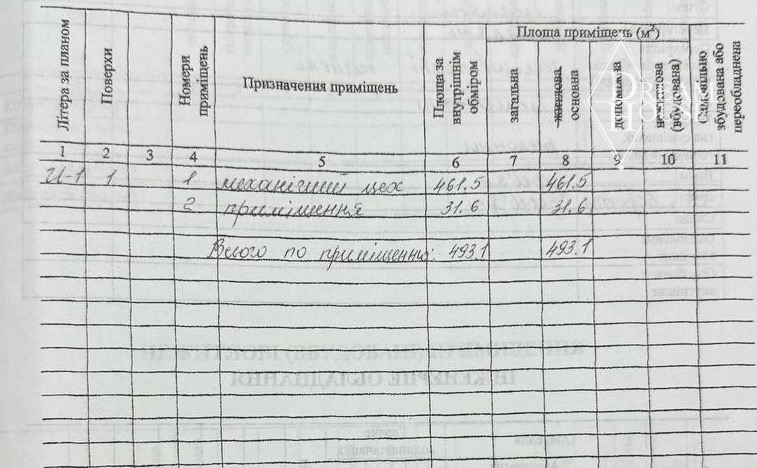 Літера за планом
Поверхи
Номери приміщень
Призначення приміщень
Площа за внутрішнім обміром
Площа приміщень (м²)
загальна
житлова, основна
допоміжна
нежитлова (вбудована)
Самовільно збудована або переобладнена
1 2 3 4 5 6 7 8 9 10 11
И-1 1 1 механічний цех 461.5 461.5
2 приміщення 31.6 31.6
Всього по приміщенню: 493.1 493.1
ІНЖЕНЕРНЕ ОБЛАДНАННЯ